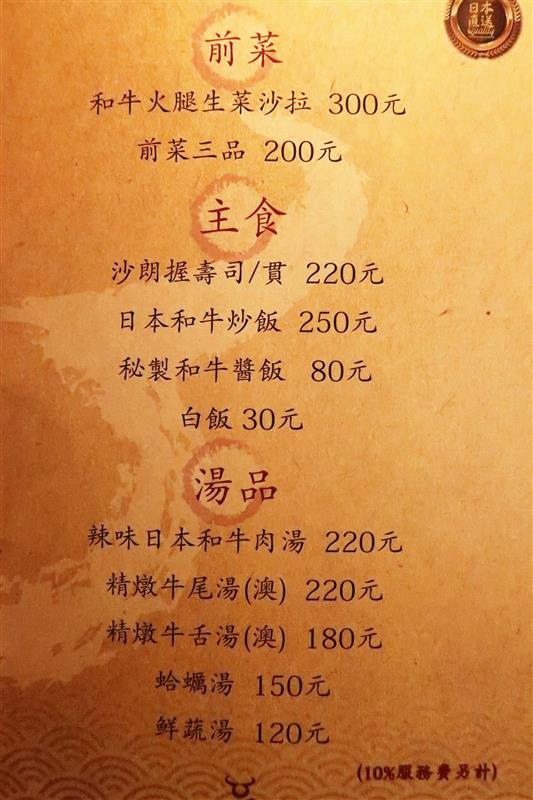 日本
直送
Quality
前菜
和牛火腿生菜沙拉 300元
前菜三品 200元
主食
沙朗握壽司/貫 220元
日本和牛炒飯 250元
秘製和牛醬飯 80元
白飯 30元
湯品
辣味日本和牛肉湯 220元
精燉牛尾湯(澳) 220元
精燉牛舌湯(澳) 180元
蛤蠣湯 150元
鮮蔬湯 120元
(10%服務費另計)